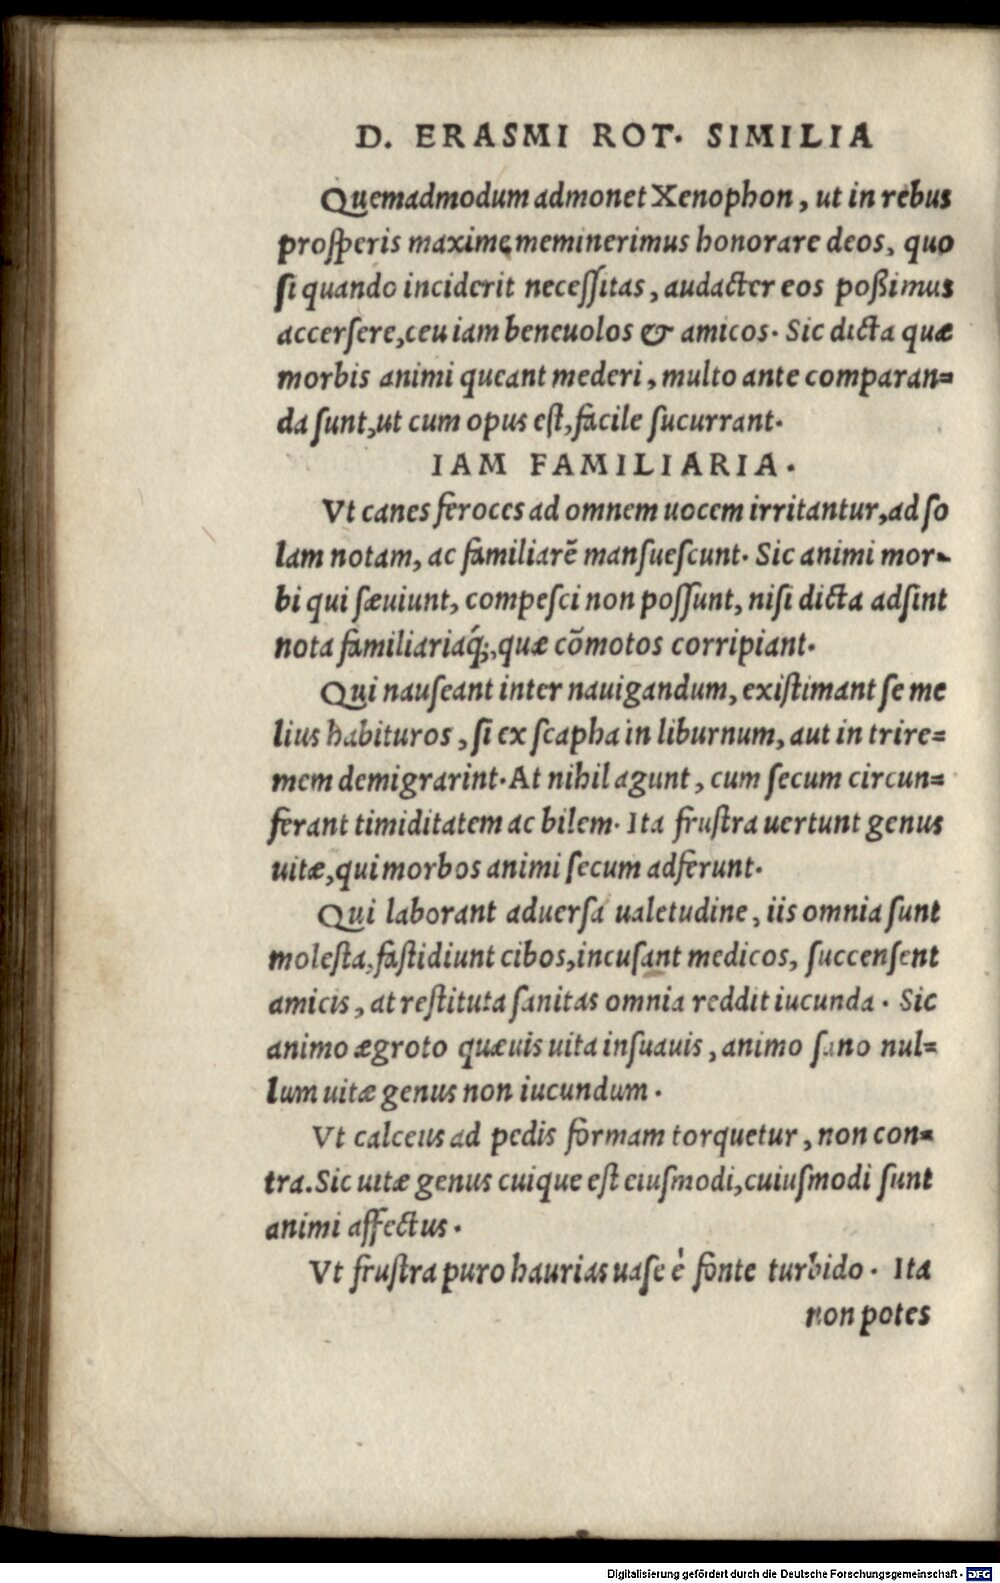 D. ERASMI ROT. SIMILIA
Quemadmodum admonet Xenophon, ut in rebus
prosperis maxime meminerimus honorare deos, quo
si quando inciderit necessitas, audacter eos poßimus
accersere, ceu iam beneuolos & amicos. Sic dicta quæ
morbis animi queant mederi, multo ante comparan=
da sunt, ut cum opus est, facile sucurrant.
IAM FAMILIARIA.
Vt canes feroces ad omnem uocem irritantur, ad so
lam notam, ac familiarē mansuescunt. Sic animi mor-
bi qui sæuiunt, compesci non possunt, nisi dicta adsint
nota familiariaq́;, quæ cōmotos corripiant.
Qui nauseant inter nauigandum, existimant se me
lius habituros, si ex scapha in liburnum, aut in trire=
mem demigrarint. At nihil agunt, cum secum circun=
ferant timiditatem ac bilem. Ita frustra uertunt genus
uitæ, qui morbos animi secum adferunt.
Qui laborant aduersa ualetudine, iis omnia sunt
molesta, fastidiunt cibos, incusant medicos, succensent
amicis, at restituta sanitas omnia reddit iucunda. Sic
animo ægroto quæuis uita insuauis, animo sano nul=
lum uitæ genus non iucundum.
Vt calceus ad pedis formam torquetur, non con=
tra. Sic uitæ genus cuique est eiusmodi, cuiusmodi sunt
animi affectus.
Vt frustra puro haurias uase è fonte turbido. Ita
non potes
Digitalisierung gefördert durch die Deutsche Forschungsgemeinschaft - DFG